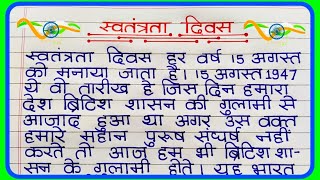 स्वतंत्रता दिवस
स्वतंत्रता दिवस हर वर्ष 15 अगस्त
को मनाया जाता है। 15 अगस्त 1947
ये वो तारीख है जिस दिन हमारा
देश ब्रिटिश शासन की गुलामी से
आज़ाद हुआ था अगर उस वक्त
हमारे महान पुरुष संघर्ष नहीं
करते तो आज हम भी ब्रिटिश शा-
सन के गुलामी होते। यह भारत